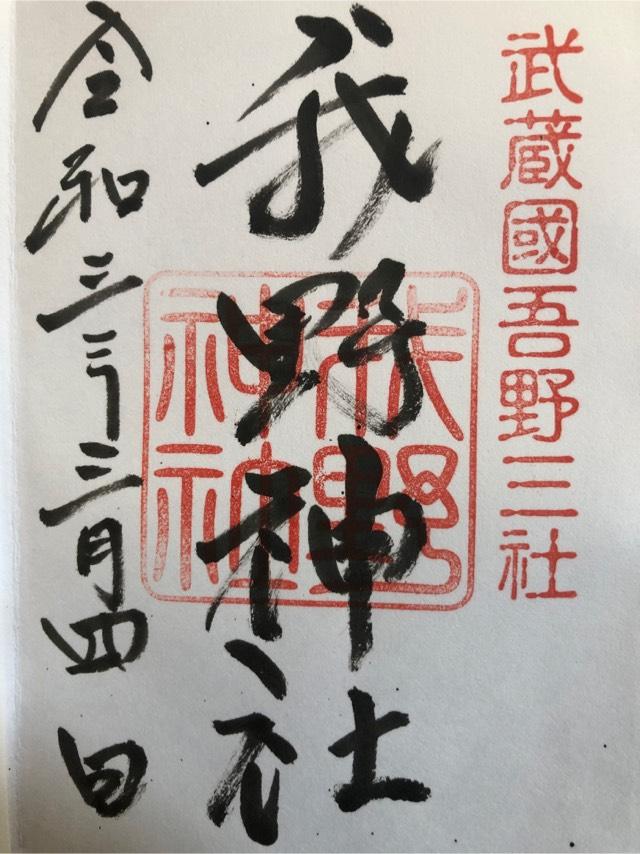 武蔵國吾野三社
我野神社
令和三年三月四日